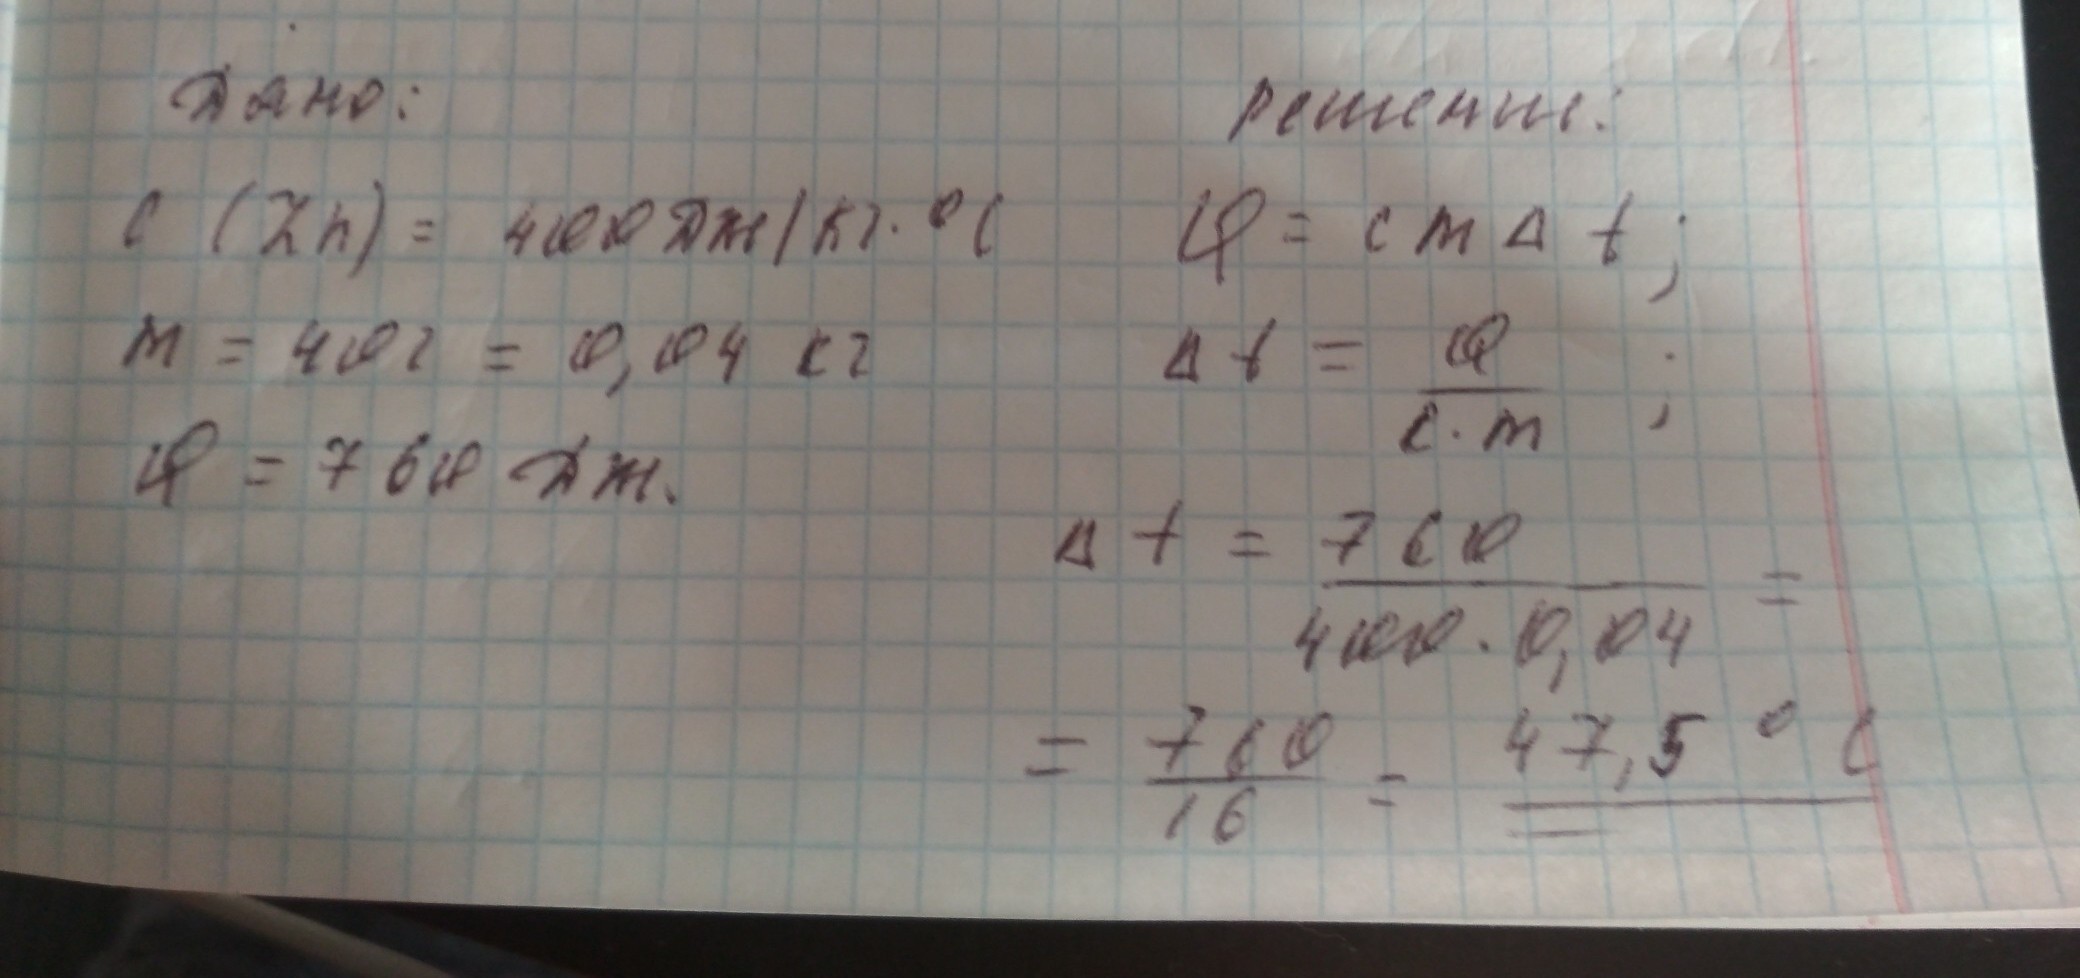 Дано:
c (Zn) = 400 Дж/кг·°C
m = 40г = 0,04 кг
Q = 760 Дж.
Решение:
Q = c m Δ t ;
Δ t = Q / c · m ;
Δ t = 760 / 400 · 0,04 =
= 760 / 16 = 47,5 °C